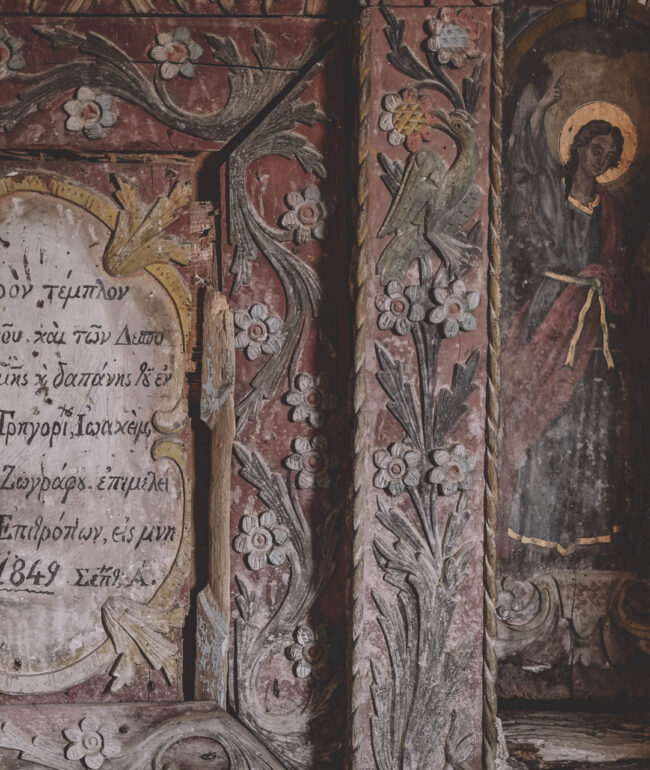 ρὸν τέμπλον
ȣ̃. καὶ τῶν Δεπο
μῆς κ̀ δαπάνης
Γρηγορί, Ἰωακὲμ,
Ζωγράφȣ. ἐπιμελεί
Ἐπιτρόπων, εἰς μνη
1849 Σεπτ: Α.